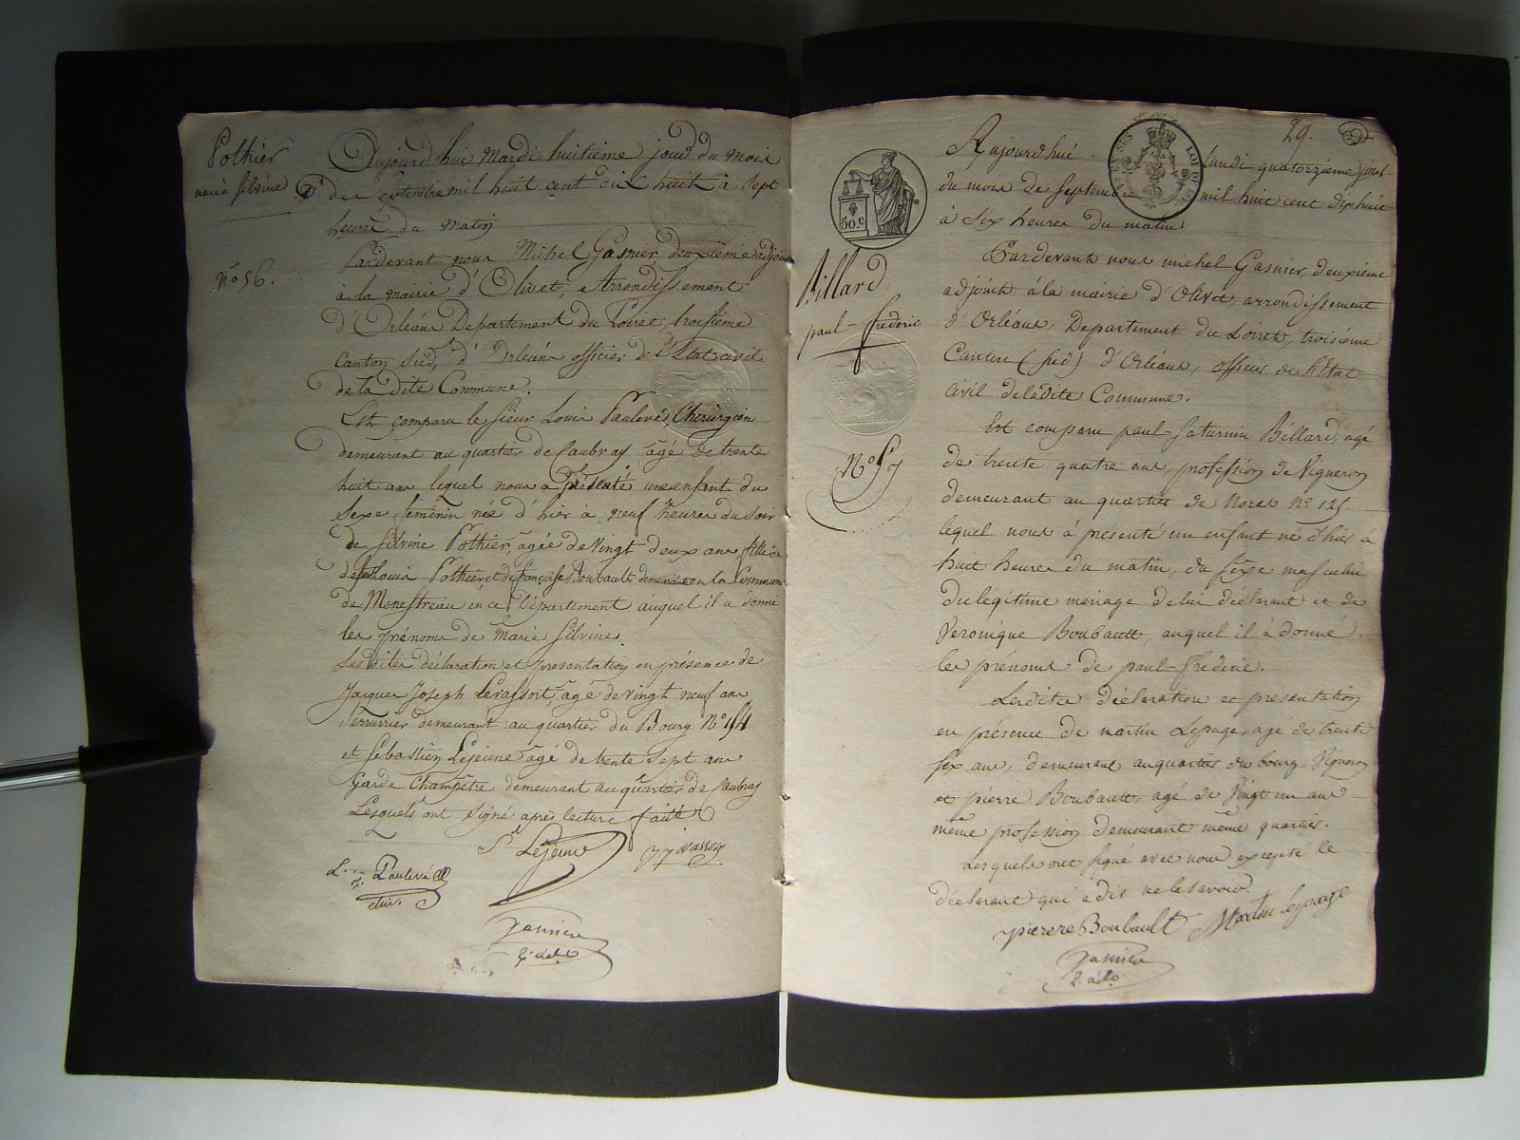 Pothier
marie silvine
N.º 56.
Aujourd'hui Mardi huitieme jour du mois
de septembre mil huit cent dix huit à sept
heures du matin
Pardevant nous Michel Gasnier deuxième adjoint
à la mairie d'Olivet, Arrondissement
d'Orléans Departement du Loiret, troisième
Canton Sud, d'Orléans officier de l'Etat civil
de la dite Commune.
Est comparu le sieur Louis Paulevé, Cherurgien
demeurant au quartier de Caubray âgé de trente
huit ans lequel nous a présenté une enfant du
sexe feminin née d'hier à neuf heures du soir
de Silvine Pothier, âgée de vingt deux ans fille
de Louis Pothier et de françoise Boubault demeurant la Commune
de Menestreau en ce Departement auquel il a donné
les prénoms de Marie Silvine.
Lesdites déclaration et presentation en présence de
Jacques Joseph Levassort, âgé de vingt neuf ans
Serrurier demeurant au quartier du Bourg N.º 154
et Sébastien Lejeune âgé de trente sept ans
Garde Champêtre demeurant au quartier de Caubray
Lesquels ont signé après lecture faite
S Lejeune
Paulevé
Gasnier
2.e adj.t
29.
50.c
Billard
paul-frederic
N.º 57
Aujourd'hui lundi quatorzieme jour
du mois de septembre mil huit cent dix huit
à six heures du matin
Pardevant nous michel Gasnier deuxieme
adjoint à la mairie d'Olivet, arrondissement
d'Orléans, Departement du Loiret, troisieme
Canton (sud) d'Orléans, officier de l'Etat
civil de ladite Commune.
Est comparu paul-Saturnin Billard, agé
de trente quatre ans, profession de Vigneron
demeurant au quartier de Noras N.º 125
lequel nous à presenté un enfant né d'hier à
huit heures du matin, du sexe masculin
du legitime menage de lui déclarant et de
Veronique Boubault, auquel il à donné
les prénoms de paul-frederic.
Lesdites déclaration et presentation
en presence de martin Lepage, agé de trente
six ans, demeurant au quartier du bourg Vigneron
et pierre Boubault, agé de Vingt un ans
même profession demeurant même quartier.
Lesquels ont signé avec nous excepté le
déclarant qui a dit ne le savoir.
pierere Boubault Martin Lepage
Gasnier
2.e adj.t